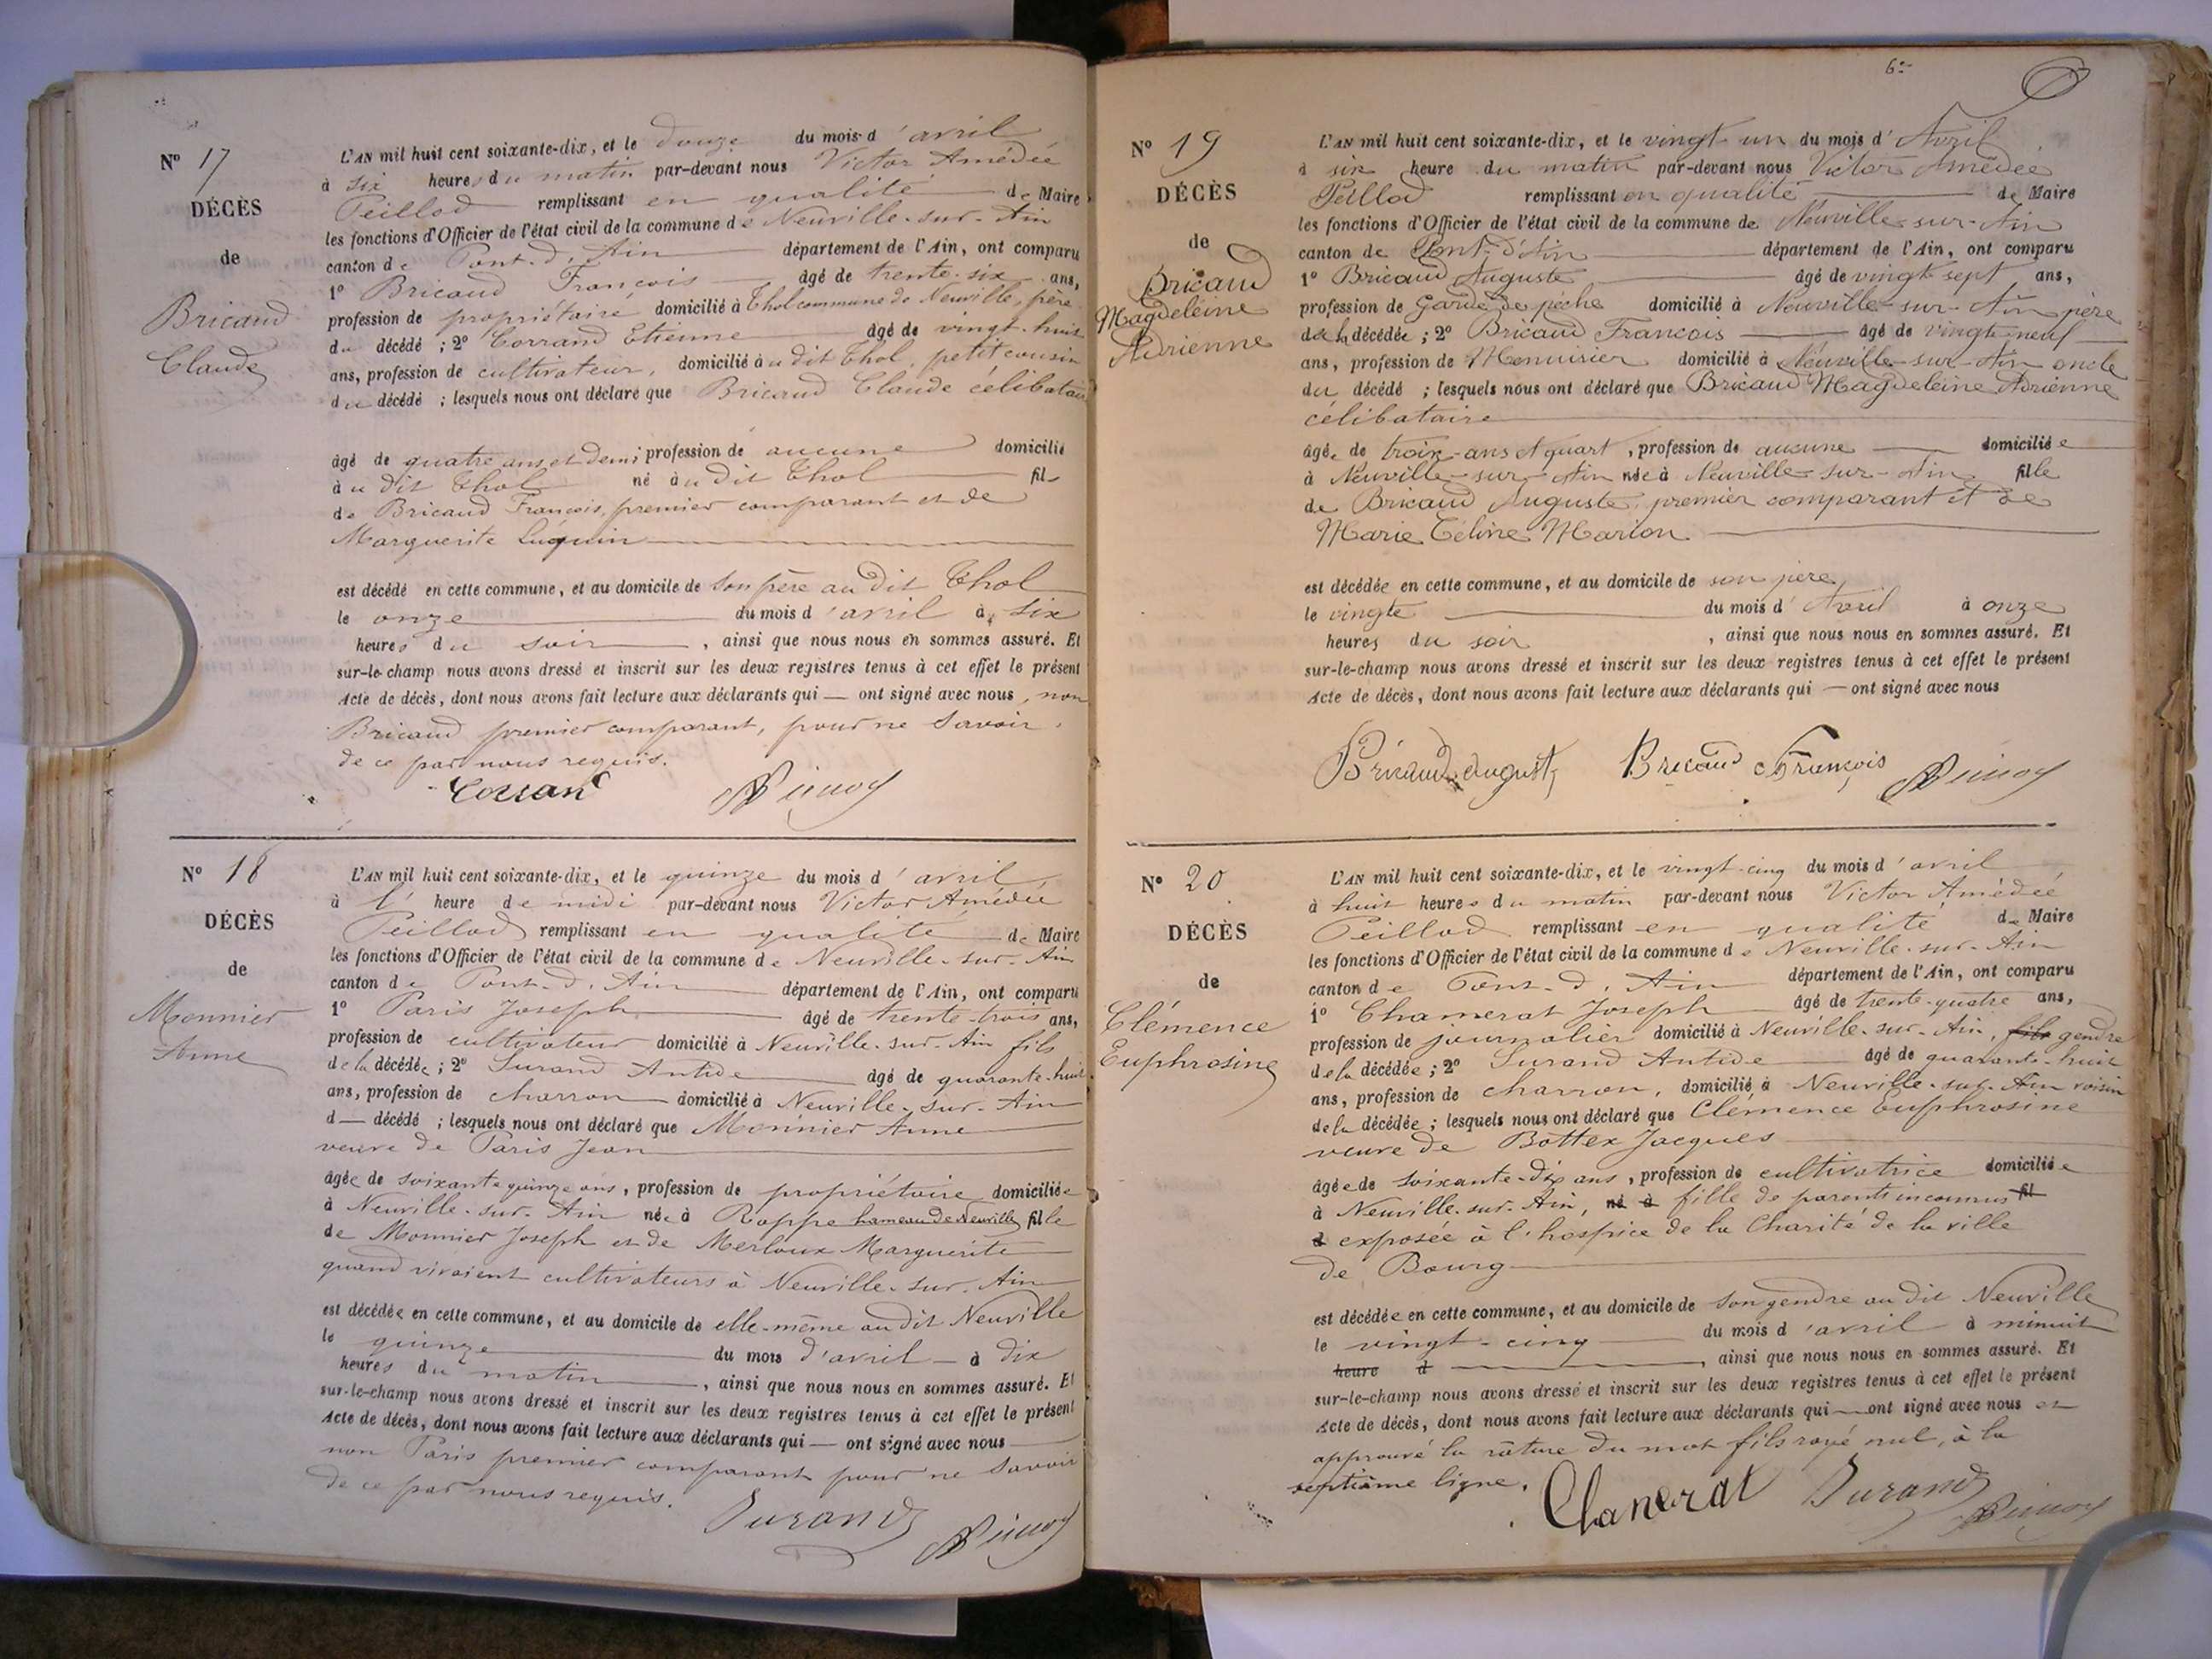 Nº 17
DÉCÈS
de
Bricaud
Claude
L'AN mil huit cent soixante-dix, et le douze du mois d'avril
à six heures du matin par-devant nous Victor Amédée
Peillod remplissant en qualité de Maire
les fonctions d'Officier de l'état civil de la commune de Neuville-sur-Ain
canton de Pont-d'Ain département de l'Ain, ont comparu
1º Bricaud François âgé de trente-six ans,
profession de propriétaire domicilié à Thol commune de Neuville, père
du décédé ; 2º Corrand Etienne âgé de vingt-huit
ans, profession de cultivateur, domicilié au dit Thol, petit cousin
du décédé ; lesquels nous ont déclaré que Bricaud Claude célibataire
âgé de quatre ans et demi profession de aucune domicilié
au dit Thol né au dit Thol fils
de Bricaud François, premier comparant et de
Marguerite Luquin
est décédé en cette commune, et au domicile de son père au dit Thol
le onze du mois d'avril à six
heures du soir, ainsi que nous nous en sommes assuré. Et
sur-le-champ nous avons dressé et inscrit sur les deux registres tenus à cet effet le présent
Acte de décès, dont nous avons fait lecture aux déclarants qui — ont signé avec nous, non
Bricaud premier comparant, pour ne savoir
de ce par nous requis.
Corrand
Nº 18
DÉCÈS
de
Monnier
Anne
L'AN mil huit cent soixante-dix, et le quinze du mois d'avril
à l' heure de midi par-devant nous Victor Amédée
Peillod remplissant en qualité de Maire
les fonctions d'Officier de l'état civil de la commune de Neuville-sur-Ain
canton de Pont-d'Ain département de l'Ain, ont comparu
1º Paris Joseph âgé de trente-trois ans,
profession de cultivateur domicilié à Neuville-sur-Ain fils
de la décédée ; 2º Durand Antide âgé de quarante-huit
ans, profession de charron domicilié à Neuville-sur-Ain
d— décédé ; lesquels nous ont déclaré que Monnier Anne
veuve de Paris Jean
âgée de soixante quinze ans, profession de propriétaire domiciliée
à Neuville-sur-Ain née à Roppe hameau de Neuville fille
de Monnier Joseph et de Merloux Marguerite
quand vivaient cultivateurs à Neuville-sur-Ain
est décédée en cette commune, et au domicile de elle-même au dit Neuville
le quinze du mois d'avril — à dix
heures du matin, ainsi que nous nous en sommes assuré. Et
sur-le-champ nous avons dressé et inscrit sur les deux registres tenus à cet effet le présent
Acte de décès, dont nous avons fait lecture aux déclarants qui — ont signé avec nous
non Paris premier comparant pour ne savoir
de ce par nous requis.
Durand
6e
Nº 19
DÉCÈS
de
Bricaud
Magdeleine
Adrienne
L'AN mil huit cent soixante-dix, et le vingt un du mois d'Avril
à six heure du matin par-devant nous Victor Amédée
Peillod remplissant en qualité de Maire
les fonctions d'Officier de l'état civil de la commune de Neuville-sur-Ain
canton de Pont-d'Ain département de l'Ain, ont comparu
1º Bricaud Auguste âgé de vingt sept ans,
profession de Garde de pêche domicilié à Neuville-sur-Ain père
de la décédée ; 2º Bricaud François âgé de vingt-neuf
ans, profession de Menuisier domicilié à Neuville-sur-Ain oncle
du décédé ; lesquels nous ont déclaré que Bricaud Magdeleine Adrienne
célibataire
âgée de trois ans et quart, profession de aucune domiciliée
à Neuville-sur-Ain née à Neuville-sur-Ain fille
de Bricaud Auguste, premier comparant et de
Marie Céline Marion
est décédée en cette commune, et au domicile de son père
le vingte du mois d'Avril à onze
heures du soir, ainsi que nous nous en sommes assuré. Et
sur-le-champ nous avons dressé et inscrit sur les deux registres tenus à cet effet le présent
Acte de décès, dont nous avons fait lecture aux déclarants qui — ont signé avec nous
Bricaud august Bricaud François
Nº 20
DÉCÈS
de
Clémence
Euphrosine
L'AN mil huit cent soixante-dix, et le vingt-cinq du mois d'avril
à huit heures du matin par-devant nous Victor Amédée
Peillod remplissant en qualité de Maire
les fonctions d'Officier de l'état civil de la commune de Neuville-sur-Ain
canton de Pont-d'Ain département de l'Ain, ont comparu
1º Chamerat Joseph âgé de trente-quatre ans,
profession de journalier domicilié à Neuville-sur-Ain, fils gendre
de la décédée ; 2º Durand Antide âgé de quarante-huit
ans, profession de charron, domicilié à Neuville-sur-Ain voisin
de la décédée ; lesquels nous ont déclaré que Clémence Euphrosine
veuve de Bottex Jacques
âgée de soixante-dix ans, profession de cultivatrice domiciliée
à Neuville-sur-Ain, né à fille de parents inconnus fil
d exposée à l'hospice de la Charité de la ville
de Bourg
est décédée en cette commune, et au domicile de son gendre au dit Neuville
le vingt-cinq du mois d'avril à minuit
heure d, ainsi que nous nous en sommes assuré. Et
sur-le-champ nous avons dressé et inscrit sur les deux registres tenus à cet effet le présent
Acte de décès, dont nous avons fait lecture aux déclarants qui — ont signé avec nous et
approuvé la râture du mot fils rayé nul, à la
septième ligne.
Chanerat Durand